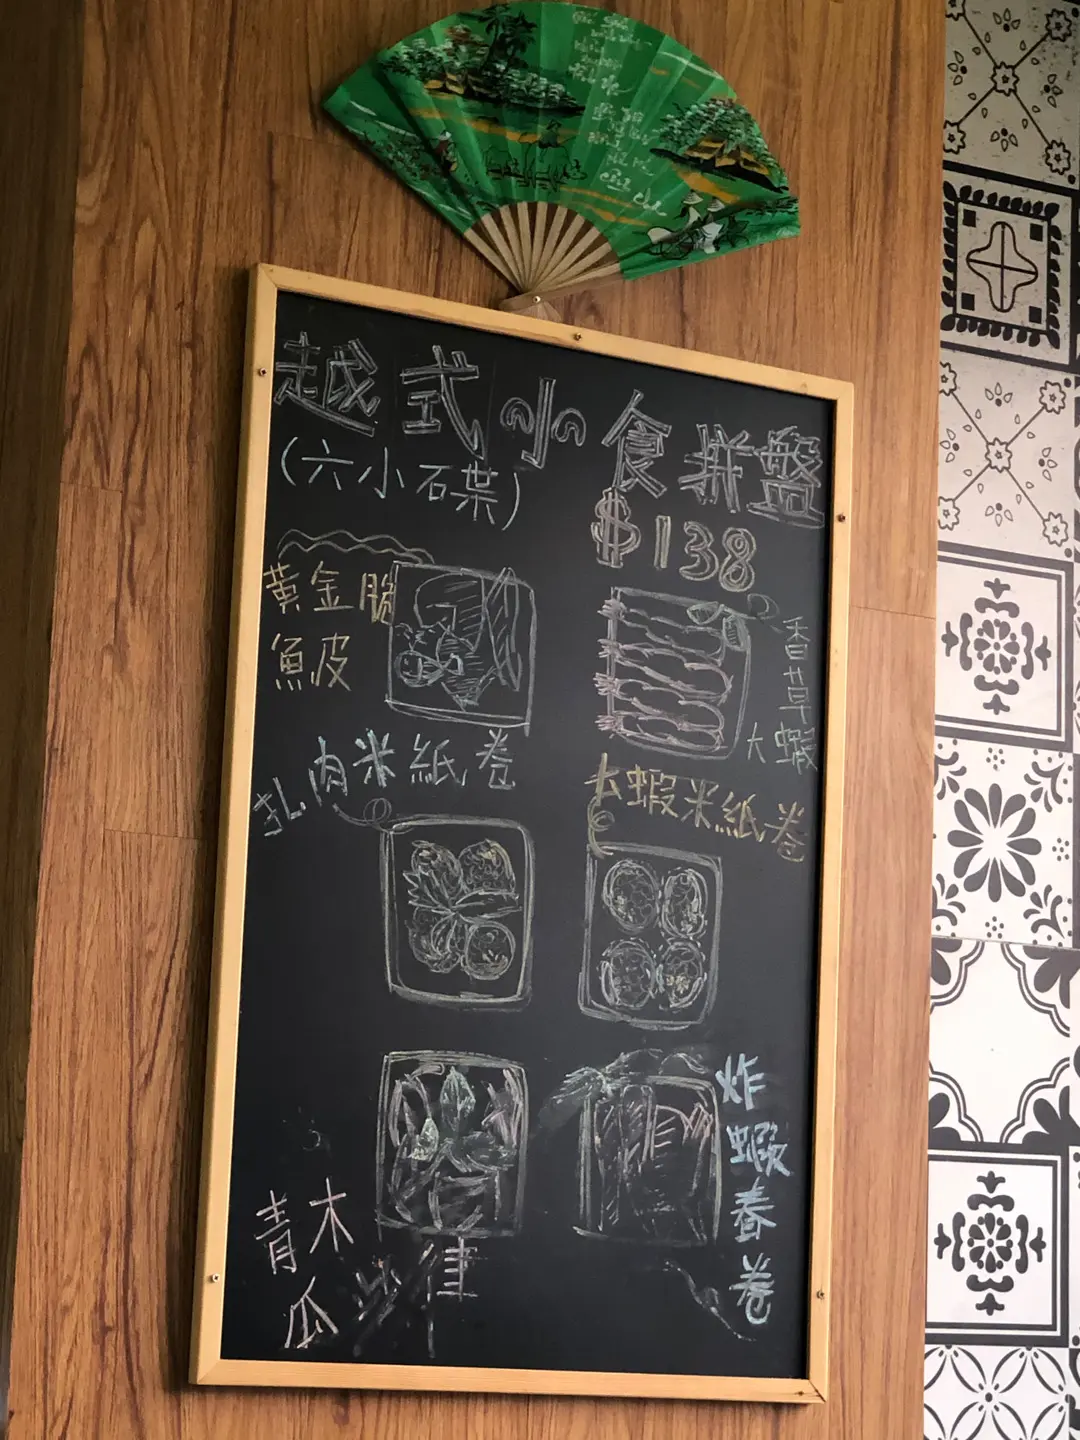 越式小食拼盤
(六小碟)
$138
黃金脆
魚皮
香草
大蝦
扎肉米紙卷
大蝦米紙卷
炸蝦春卷
青木
瓜沙律